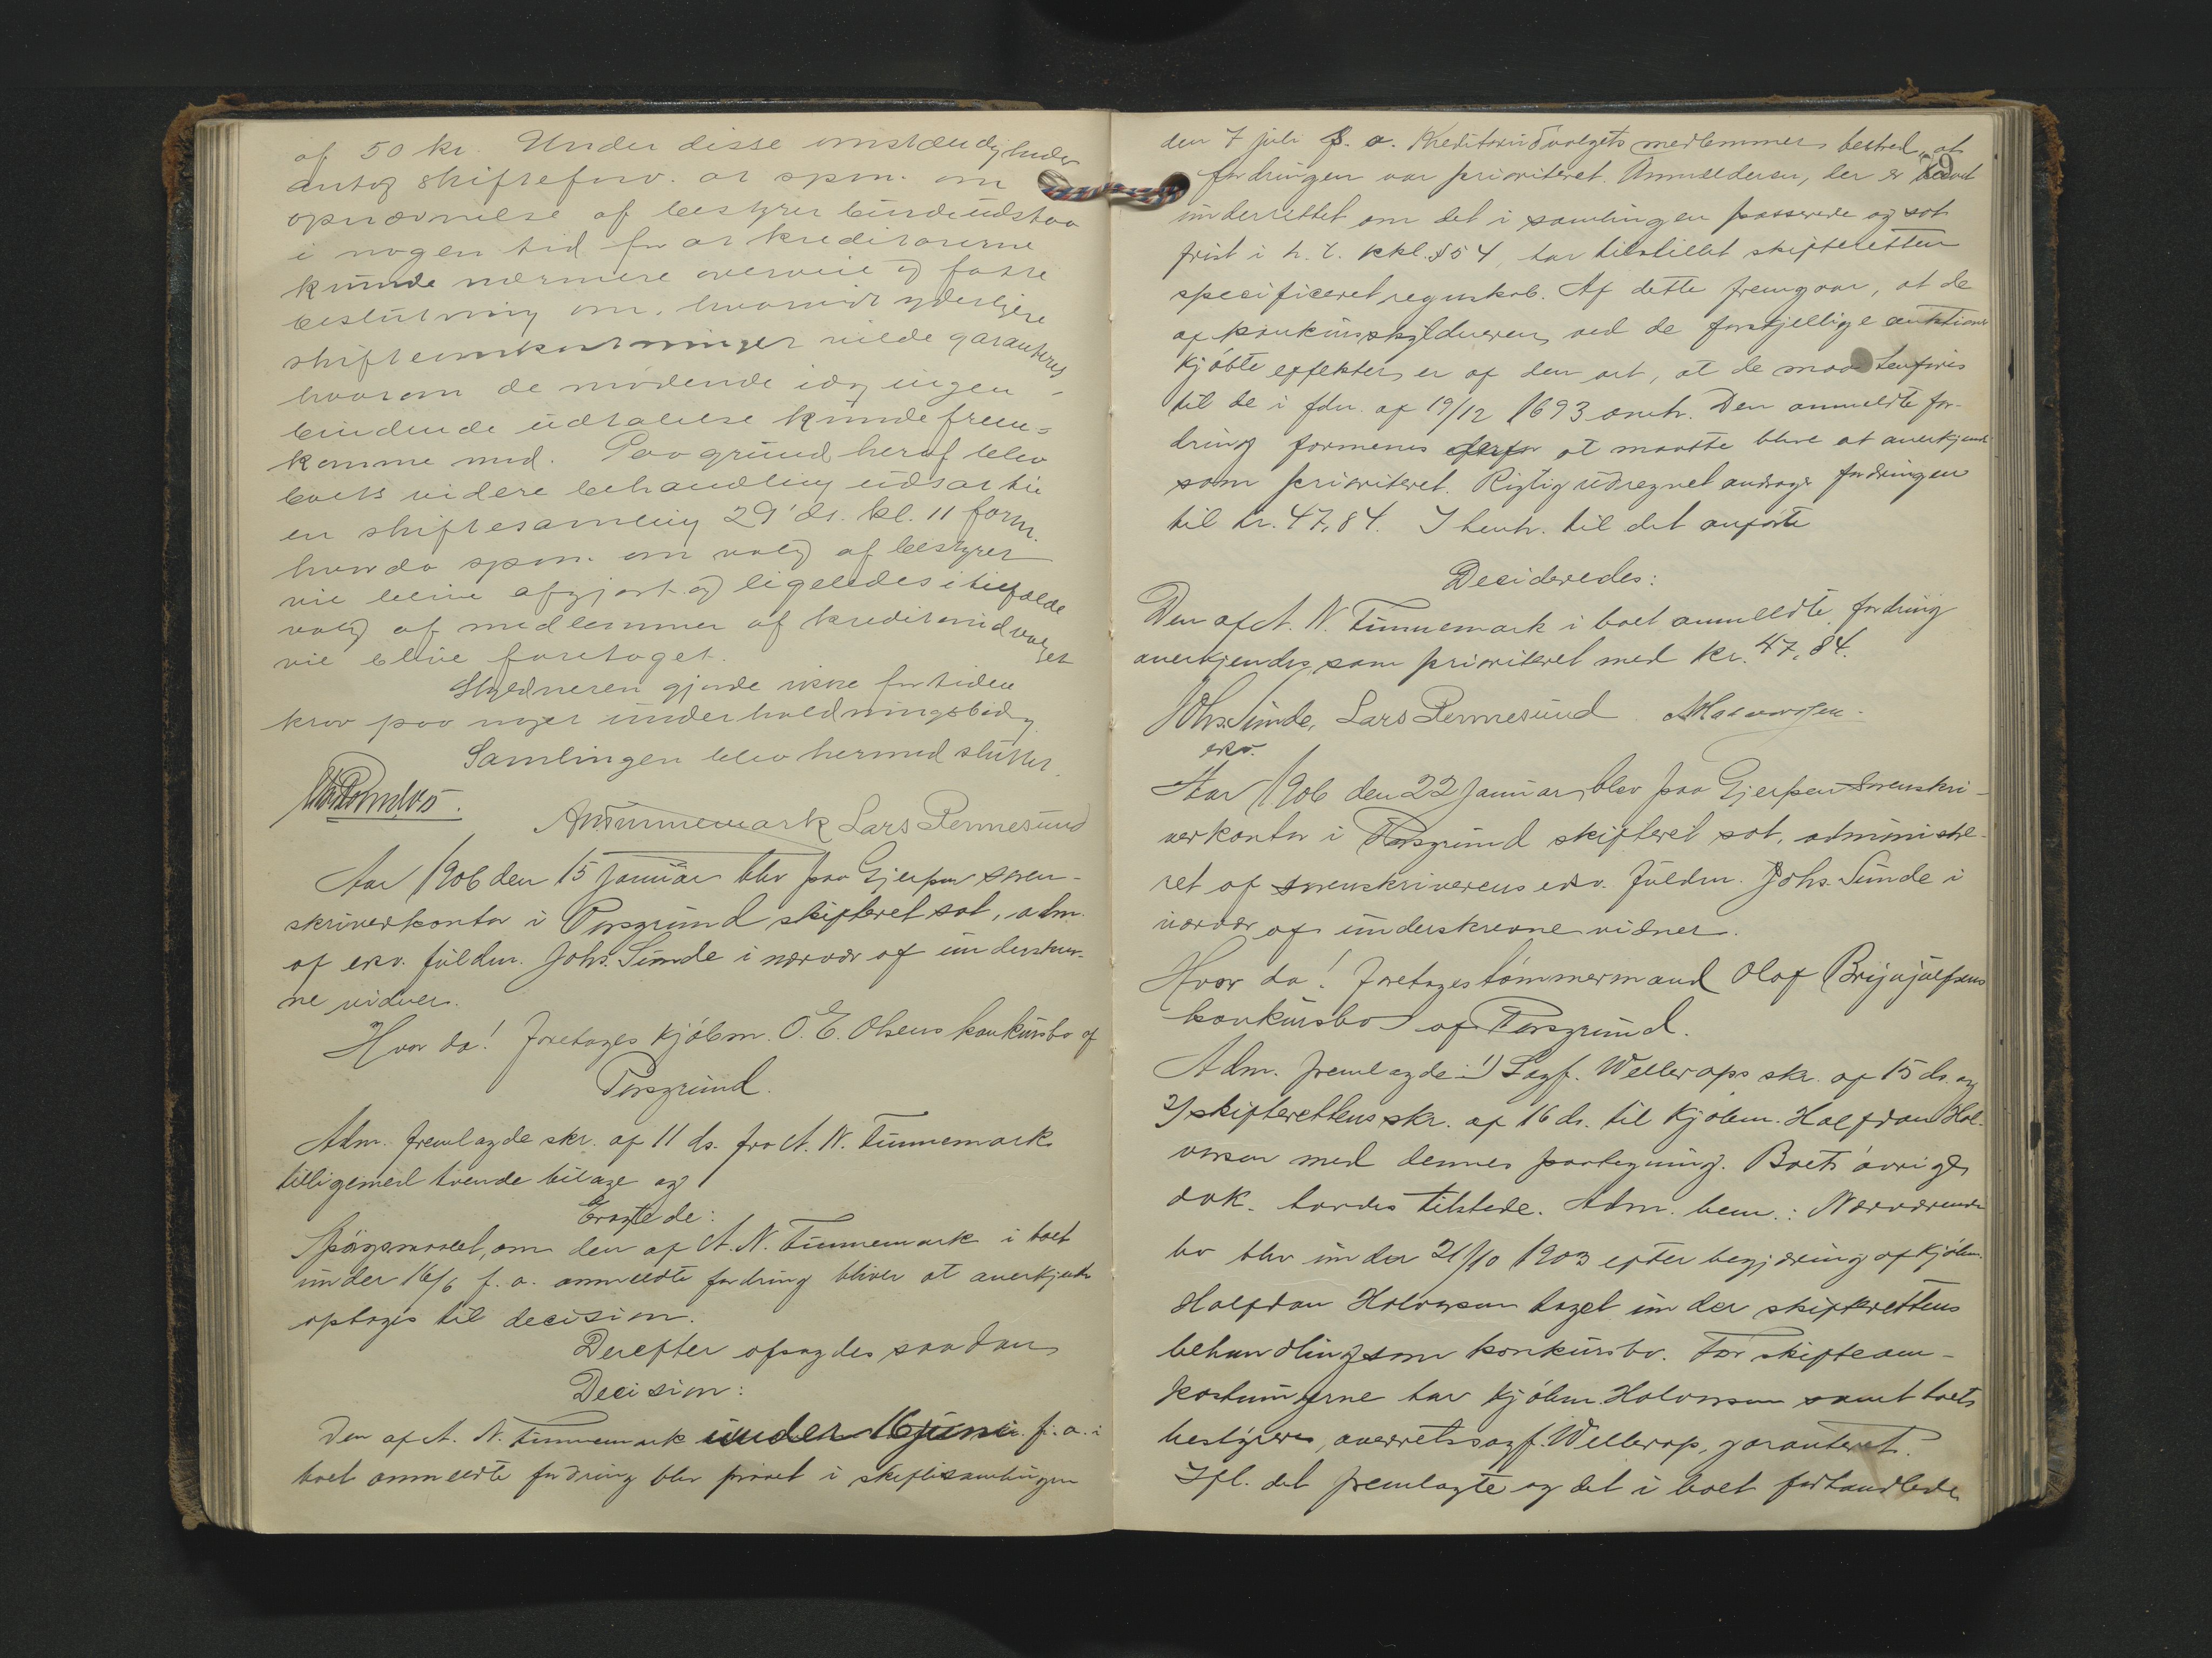 af 50 kr. Under disse omstændigheder
antog skifteforv. at spm. om
opnævnelse af bestyrer burde udstaa
i nogen tid for at kreditorerne
kunde nærmere overveie og fatte
beslutning om, hvorvidt yderligere
skifteomkostninger vilde garanteres
hvorom de mødende idag ingen
bindende udtalelse kunde frem-
komme med. Paa grund heraf blev
boets videre behandling udsat til
en skiftesamling 29' ds. kl. 11 form.
hvor da spm. om valg af bestyrer
vil blive afgjort og ligeledes i tilfælde
valg af medlemmer af kreditorudvalget
vil blive foretaget.
Skyldneren gjorde ikke for tiden
krav paa noget underholdningsbidrag
Samlingen blev hermed sluttet.
A N Tinnemark Lars Permesund
Aar 1906 den 15 januar blev paa Gjerpen soren-
skriverkontor i Porsgrund skifteret sat, adm.
af exv. fuldm. Johs. Sunde i nærvær af underskrev-
ne vidner.
Hvor da! Foretages kjøbm. O. E. Olsens konkursbo af
Porsgrund.
Adm. fremlagde skr. af 11 ds. fra A. N. Tinnemark
tilligemed tvende bilage og
Eragtede:
Spørgsmaalet, om den af A. N. Tinnemark i boet
under 16/6 f. a. anmeldte fordring bliver at anerkjende
optages til decision.
Derefter afsagdes saadan
Decision:
Den af A. N. Tinnemark under 16 juni f. a. i
boet anmeldte fordring blev prøvet i skiftesamlingen
den 7 juli f. a. Kreditorudvalgets medlemmer bestred, at
fordringen var prioriteret. Anmelderen, der er
underrettet om det i samlingen passerede og sat
frist i h. t. kkl. § 54, har tilstillet skifteretten
specificeret regnskab. Af dette fremgaar, at de
af konkursskyldneren ved de forskjellige auktioner
kjøbte effekter er af den art, at de maa henføres
til de i fdn. af 19/12 1693 omh. Den anmeldte for-
dring formenes derfor at maatte blive at anerkjende
som prioriteret. Rigtig udregnet andrager fordringen
til kr. 47,84. I henh. til det anførte
Decideredes:
Den af A. N. Tinnemark i boet anmeldte fordring
anerkjendes som prioriteret med kr. 47,84.
Johs. Sunde, Lars Permesund
exv.
Aar 1906 den 22 januar blev paa Gjerpen sorenskri-
verkontor i Porsgrund skifteret sat, administre-
ret af sorenskriverens exv. fuldm. Johs. Sunde i
nærvær af underskrevne vidner.
Hvor da! Foretages tømmermand Olaf Brijnjulfsens
konkursbo af Porsgrund.
Adm. fremlagde: 1) Sagf. Wellerops skr. af 15 ds. og
2) skifterettens skr. af 16 ds. til kjøbm. Halfdan Hal-
vorsen med dennes paategning. Boets øvrige
dok. havdes tilstede. Adm. bem.: Nærværende
bo blev under 21/10 1903 efter begjæring af kjøbm.
Halfdan Halvorsen taget under skifterettens
behandling som konkursbo. For skifteom-
kostningerne har kjøbm. Halvorsen samt boets
bestyrer, overretssagf. Wellerop, garanteret.
Ifl. det fremlagte og det i boet forhandlede